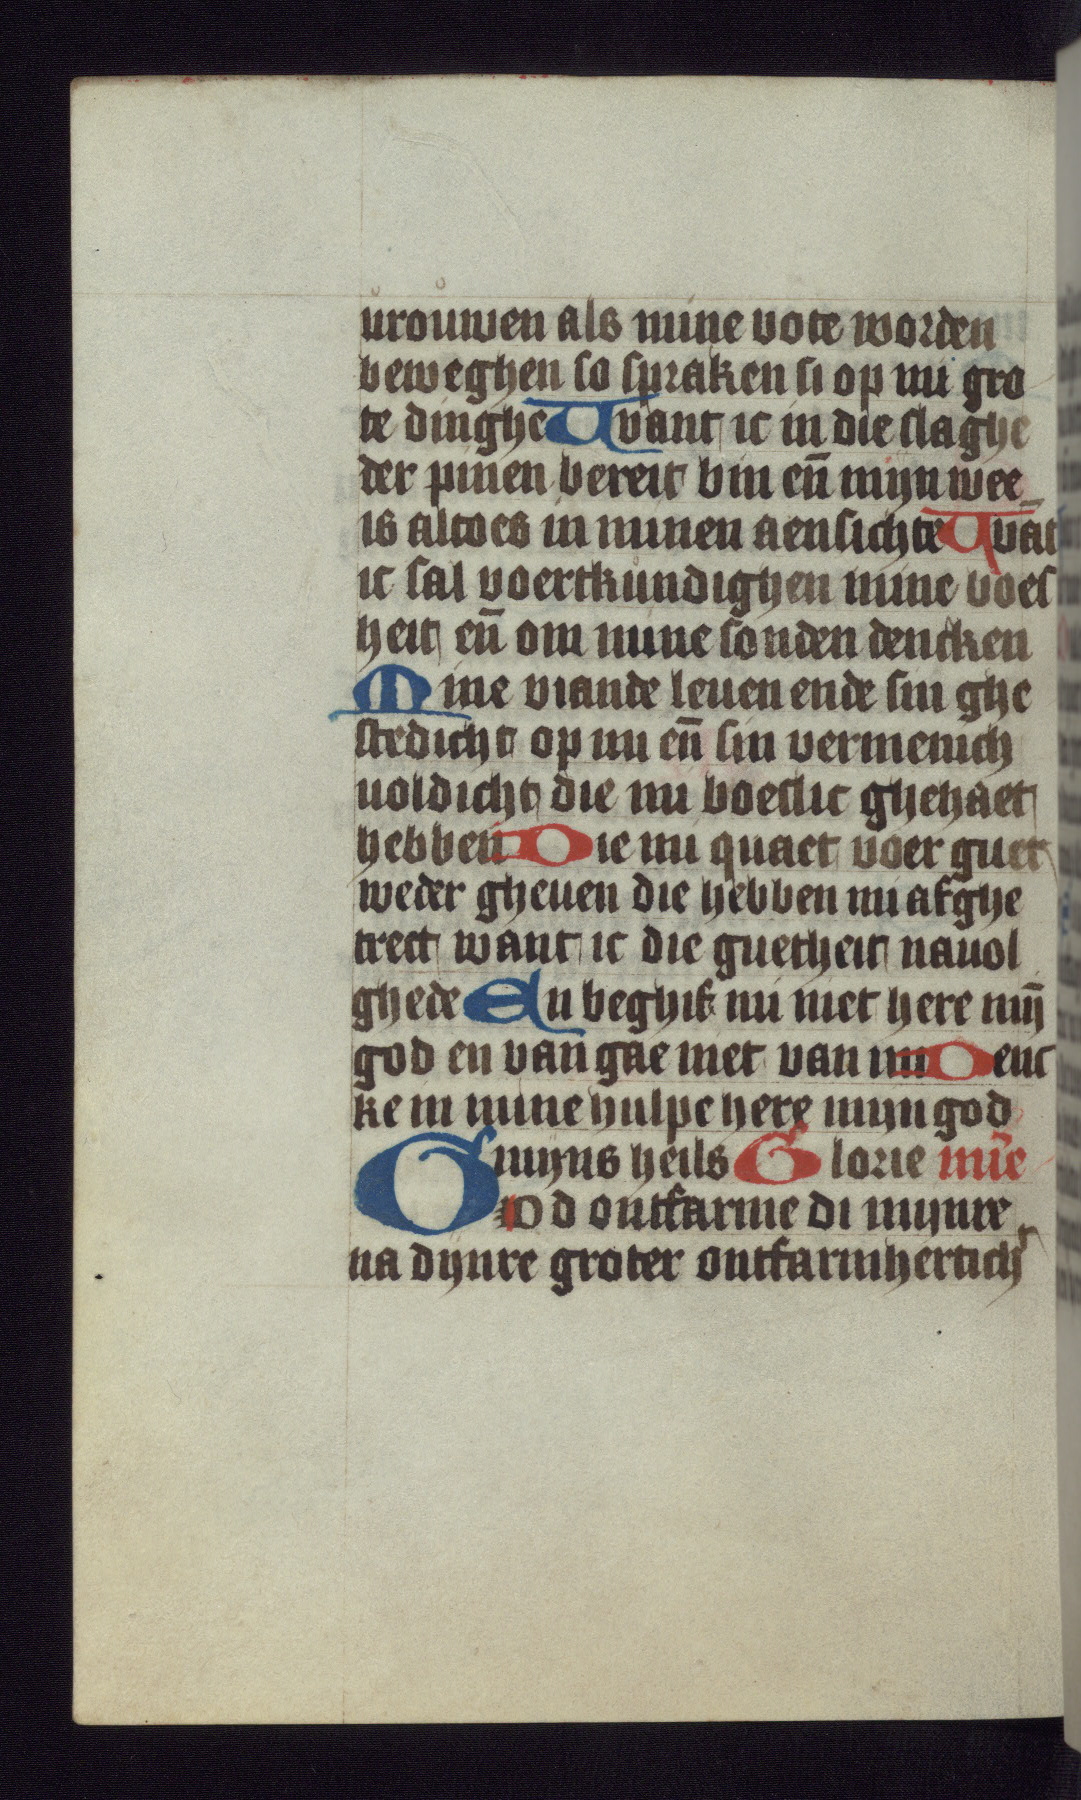 urouwen als mine vote worden
beweghen so spraken si op mi gro
te dinghe Want ic in die slaghe
der pinen bereit bin en̄ mijn wee
is altoes in minen aensichte Wāt
ic sal voertkundighen mine boes
heit en̄ om mine sonden dencken
Mine viande leuen ende sin ghe
stedicht op mi en̄ sin vermenich
uoldicht die mi boeslic ghehaet
hebben Die mi quaet voer guet
weder gheuen die hebben mi afghe
trect want ic die guetheit nauol
ghede En beghif mi niet here mij̄
god en van gae niet van mi Denc
ke in mine hulpe here mijn god
mijns heils Glorie mīe
God ontfarme di mijnre
na dijnre groter ontfarmhertich